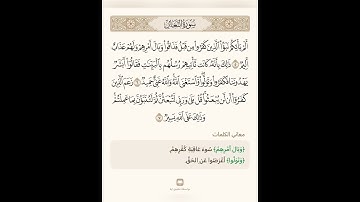 سُورَةُ التَّغَابُنِ
أَلَمْ يَأْتِكُمْ نَبَؤُا۟ ٱلَّذِينَ كَفَرُوا۟ مِن قَبْلُ فَذَاقُوا۟ وَبَالَ أَمْرِهِمْ وَلَهُمْ عَذَابٌ
أَلِيمٌ ۝ ذَٰلِكَ بِأَنَّهُۥ كَانَت تَّأْتِيهِمْ رُسُلُهُم بِٱلْبَيِّنَٰتِ فَقَالُوٓا۟ أَبَشَرٌ
يَهْدُونَنَا فَكَفَرُوا۟ وَتَوَلَّوا۟ وَّٱسْتَغْنَى ٱللَّهُ وَٱللَّهُ غَنِىٌّ حَمِيدٌ ۝ زَعَمَ ٱلَّذِينَ
كَفَرُوٓا۟ أَن لَّن يُبْعَثُوا۟ قُلْ بَلَىٰ وَرَبِّى لَتُبْعَثُنَّ ثُمَّ لَتُنَبَّؤُنَّ بِمَا عَمِلْتُمْ
وَذَٰلِكَ عَلَى ٱللَّهِ يَسِيرٌ ۝
معاني الكلمات
﴿وَبَالَ أَمْرِهِمْ﴾ سُوءَ عَاقِبَةِ كُفْرِهِمْ.
﴿وَتَوَلَّوا﴾ أَعْرَضُوا عَنِ الحَقِّ.